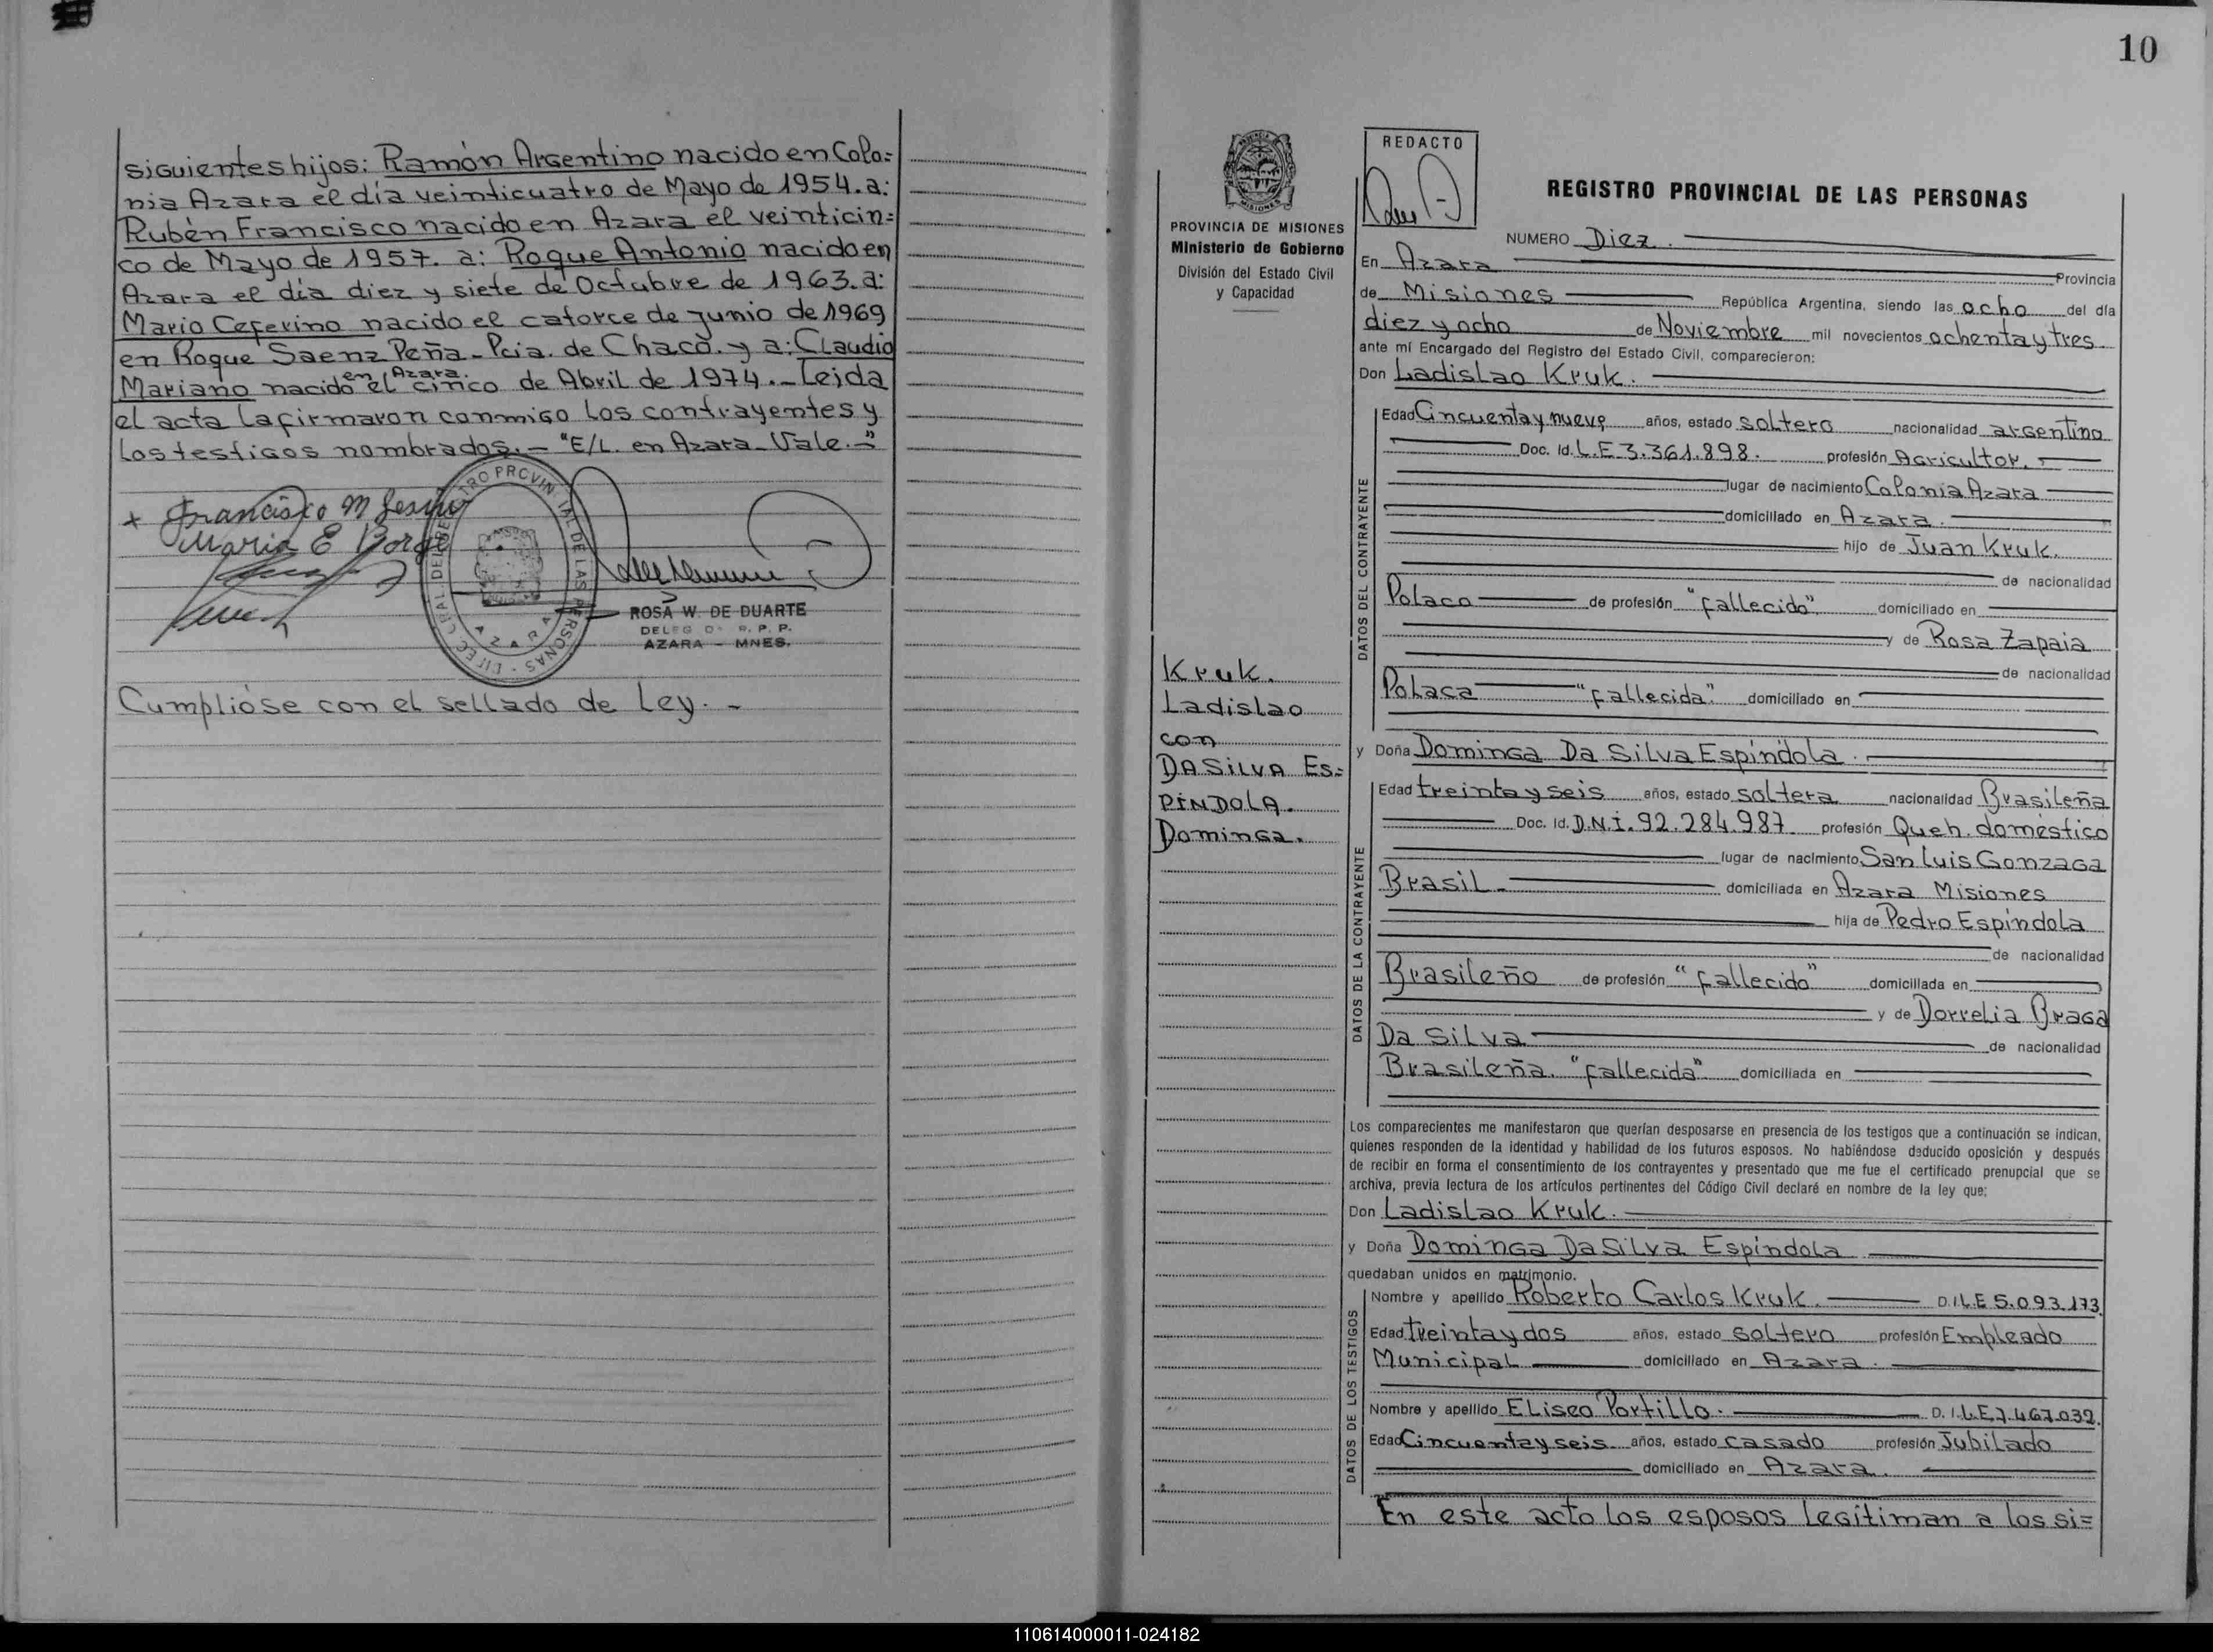 siguientes hijos: Ramón Argentino nacido en Colo=
nia Azara el día veinticuatro de Mayo de 1954. a:
Rubén Francisco nacido en Azara el veinticin=
co de Mayo de 1957. a: Roque Antonio nacido en
Azara el día diez y siete de Octubre de 1963. a:
Mario Ceferino nacido el catorce de Junio de 1969
en Roque Saenz Peña - Pcia. de Chaco. y a: Claudio
en Azara.
Mariano nacido el cinco de Abril de 1974. - Leida
el acta la firmaron conmigo los contrayentes y
los testigos nombrados. - "E/L. en Azara - Vale. -"
x Francisco M
Maria E Borge
ROSA W. DE DUARTE
DELEG R. P. P.
AZARA - MNES.
AZARA
Cumplióse con el sellado de Ley. -
10
PROVINCIA DE MISIONES
Ministerio de Gobierno
División del Estado Civil
y Capacidad
Kruk.
Ladislao
con
DA SILVA ES=
PÍNDOLA.
Dominga.
REDACTO
REGISTRO PROVINCIAL DE LAS PERSONAS
NUMERO Diez.
En Azara Provincia
de Misiones República Argentina, siendo las ocho del día
diez y ocho de Noviembre mil novecientos ochenta y tres
ante mí Encargado del Registro del Estado Civil, comparecieron:
Don Ladislao Kruk.
DATOS DEL CONTRAYENTE
Edad Cincuenta y nueve años, estado soltero nacionalidad argentino
Doc. Id. L.E. 3.361.898. profesión Agricultor.
lugar de nacimiento Colonia Azara
domiciliado en Azara.
hijo de Juan Kruk.
de nacionalidad
Polaco de profesión "fallecido". domiciliado en
y de Rosa Zapaia
de nacionalidad
Polaca "fallecida". domiciliado en
y Doña Dominga Da Silva Espíndola.
DATOS DE LA CONTRAYENTE
Edad treinta y seis años, estado soltera nacionalidad Brasileña
Doc. Id. D.N.I. 92.284.987 profesión Queh. doméstico
lugar de nacimiento San Luis Gonzaga
Brasil - domiciliada en Azara Misiones
hija de Pedro Espíndola
de nacionalidad
Brasileño de profesión "fallecido" domiciliada en
y de Dorrelia Braga
Da Silva de nacionalidad
Brasileña. "fallecida" domiciliada en
Los comparecientes me manifestaron que querían desposarse en presencia de los testigos que a continuación se indican,
quienes responden de la identidad y habilidad de los futuros esposos. No habiéndose deducido oposición y después
de recibir en forma el consentimiento de los contrayentes y presentado que me fue el certificado prenupcial que se
archiva, previa lectura de los artículos pertinentes del Código Civil declaré en nombre de la ley que:
Don Ladislao Kruk.
y Doña Dominga Da Silva Espíndola
quedaban unidos en matrimonio.
DATOS DE LOS TESTIGOS
Nombre y apellido Roberto Carlos Kruk. D.I. L.E 5.093.173.
Edad treinta y dos años, estado soltero profesión Empleado
Municipal domiciliado en Azara.
Nombre y apellido Eliseo Portillo. D.I. L.E. 7.467.032.
Edad Cincuenta y seis años, estado casado profesión Jubilado
domiciliado en Azara.
En este acto los esposos legitiman a los si=
110614000011-024182